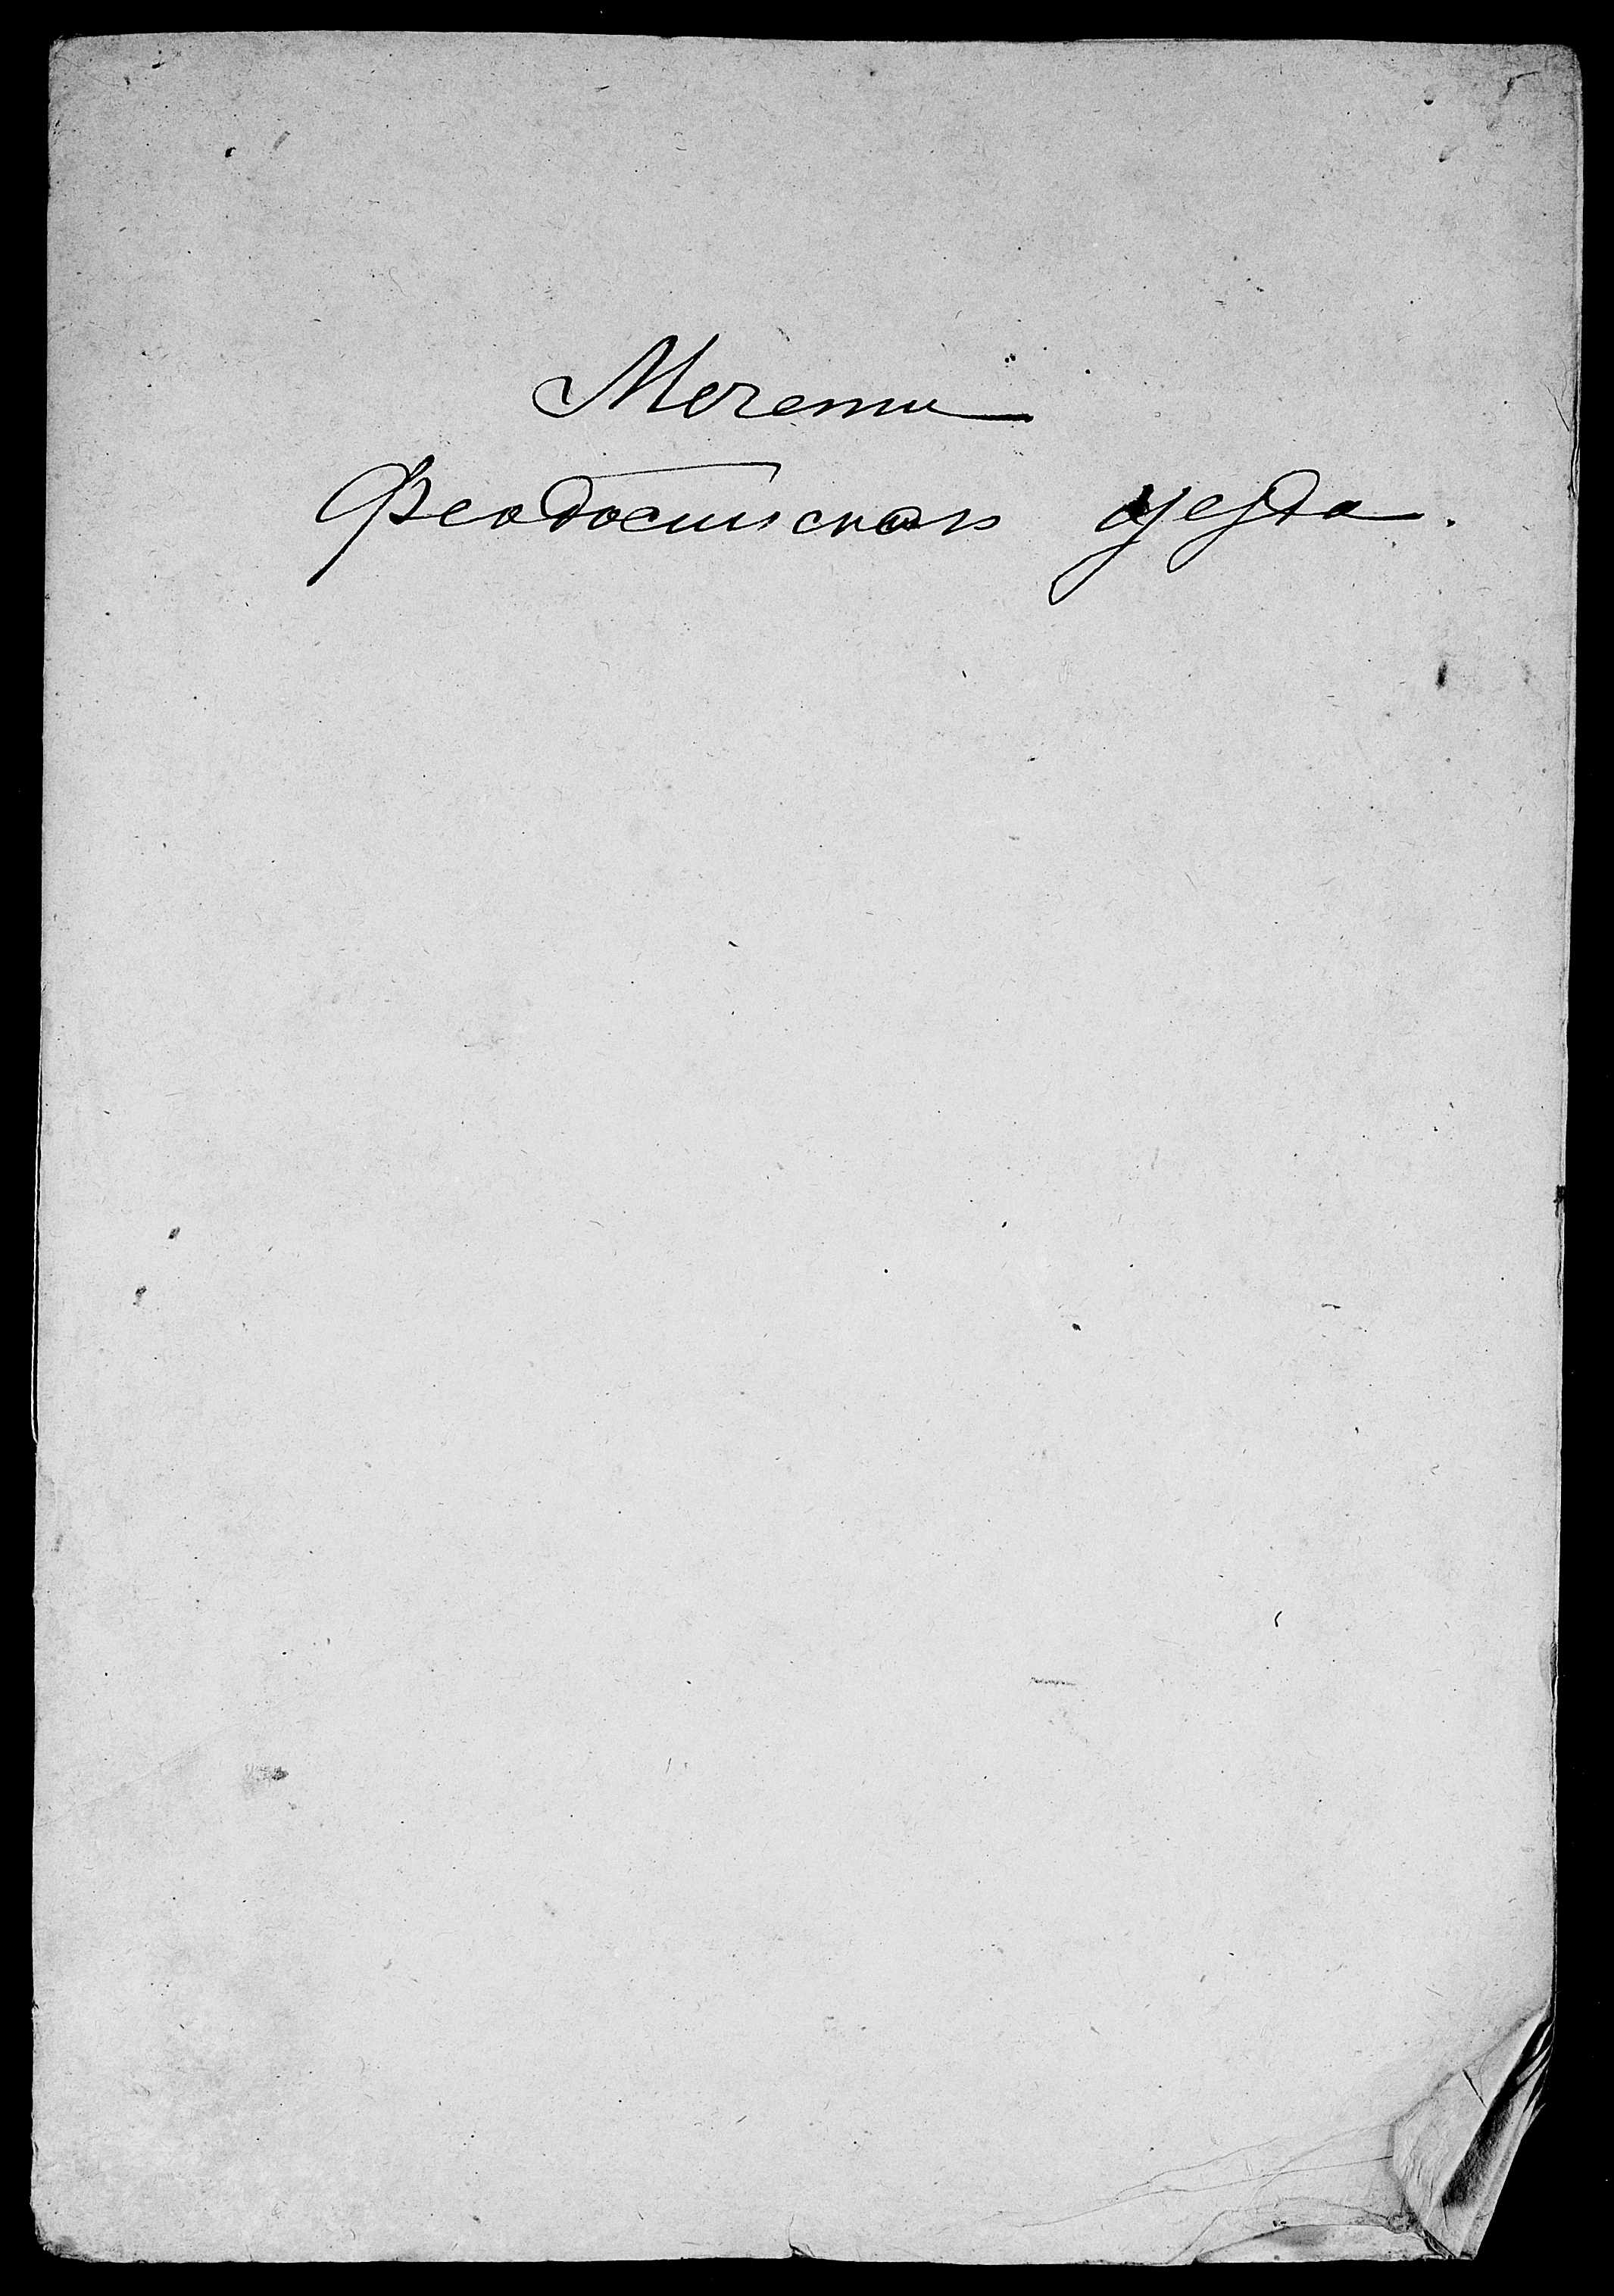 Мечети
Феодосийского уезда.